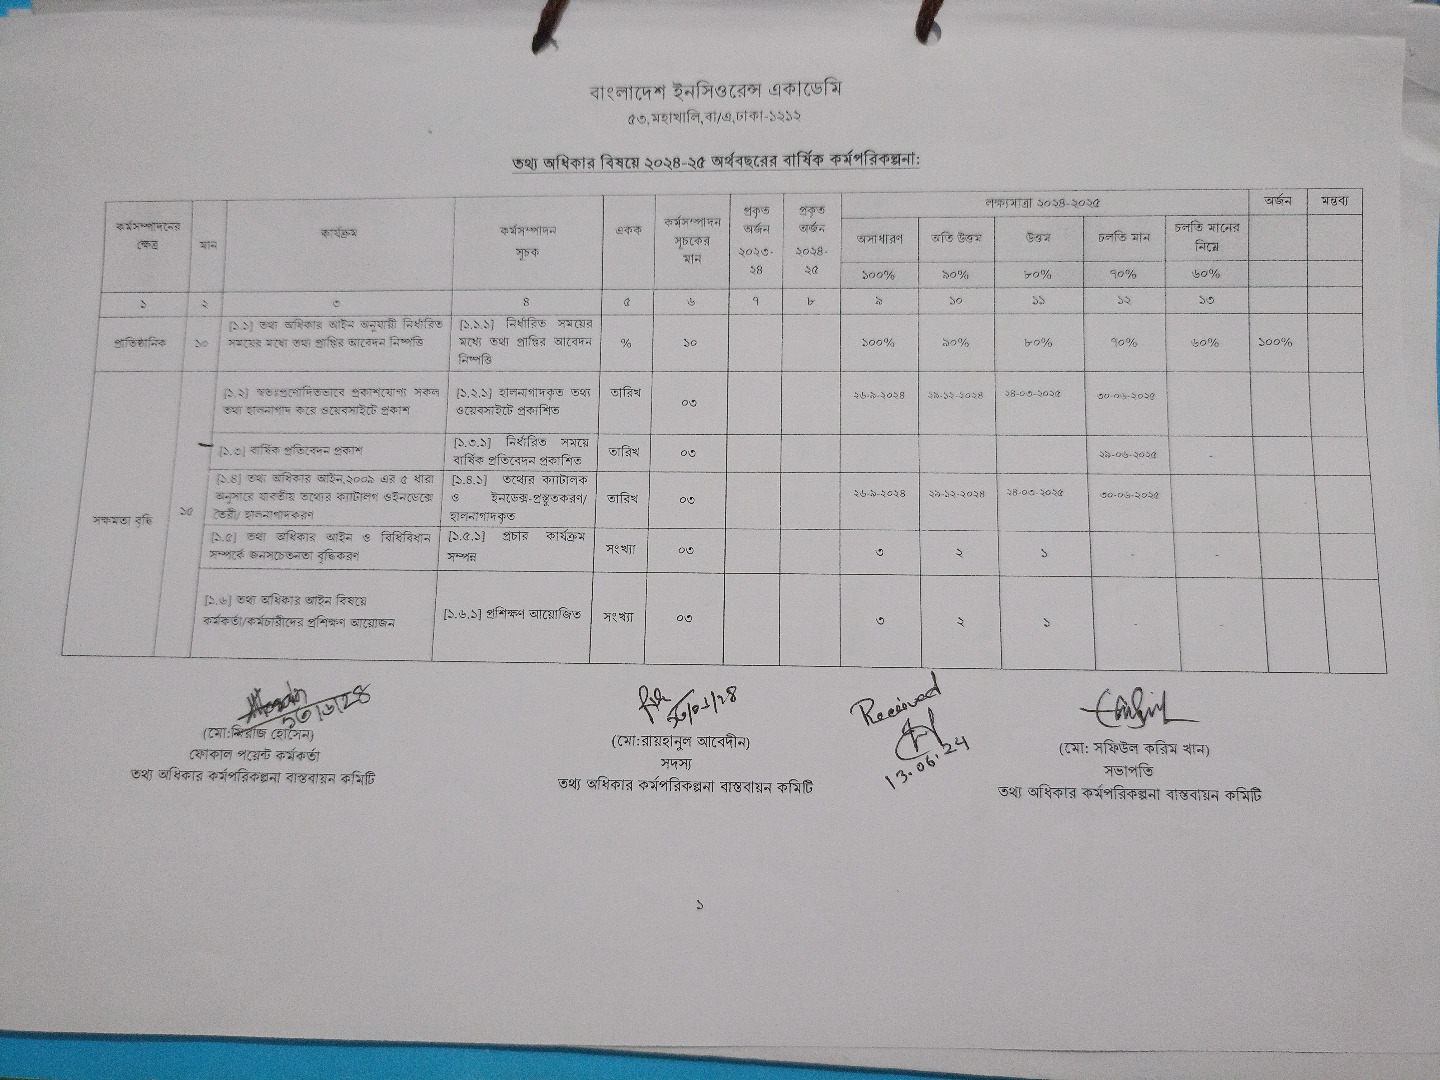 বাংলাদেশ ইনসিওরেন্স একাডেমি
৫৩,মহাখালি,বা/এ,ঢাকা-১২১২
তথ্য অধিকার বিষয়ে ২০২৪-২৫ অর্থবছরের বার্ষিক কর্মপরিকল্পনা:
কর্মসম্পাদনের ক্ষেত্র
মান
কার্যক্রম
কর্মসম্পাদন সূচক
একক
কর্মসম্পাদন সূচকের মান
প্রকৃত অর্জন ২০২৩-২৪
প্রকৃত অর্জন ২০২৪-২৫
লক্ষ্যমাত্রা ২০২৪-২০২৫
অর্জন
মন্তব্য
অসাধারণ
অতি উত্তম
উত্তম
চলতি মান
চলতি মানের নিম্নে
১০০% ৯০% ৮০% ৭০% ৬০%
১ ২ ৩ ৪ ৫ ৬ ৭ ৮ ৯ ১০ ১১ ১২ ১৩
প্রাতিষ্ঠানিক
১০
[১.১] তথ্য অধিকার আইন অনুযায়ী নির্ধারিত
সময়ের মধ্যে তথ্য প্রাপ্তির আবেদন নিষ্পত্তি
[১.১.১] নির্ধারিত সময়ের
মধ্যে তথ্য প্রাপ্তির আবেদন
নিষ্পত্তি
% ১০ ১০০% ৯০% ৮০% ৭০% ৬০% ১০০%
সক্ষমতা বৃদ্ধি
১৫
[১.২] স্বতঃপ্রণোদিতভাবে প্রকাশযোগ্য সকল
তথ্য হালনাগাদ করে ওয়েবসাইটে প্রকাশ
[১.২.১] হালনাগাদকৃত তথ্য
ওয়েবসাইটে প্রকাশিত
তারিখ ০৩ ২৬-৯-২০২৪ ২৯-১২-২০২৪ ২৪-০৩-২০২৫ ৩০-০৬-২০২৫
[১.৩] বার্ষিক প্রতিবেদন প্রকাশ
[১.৩.১] নির্ধারিত সময়ে
বার্ষিক প্রতিবেদন প্রকাশিত
তারিখ ০৩ ২৯-০৬-২০২৫ -
[১.৪] তথ্য অধিকার আইন,২০০৯ এর ৫ ধারা
অনুসারে যাবতীয় তথ্যের ক্যাটালগ ওইনডেক্সে
তৈরী/ হালনাগাদকরণ
[১.৪.১] তথ্যের ক্যাটালক
ও ইনডেক্স-প্রস্তুতকরণ/
হালনাগাদকৃত
তারিখ ০৩ ২৬-৯-২০২৪ ২৯-১২-২০২৪ ২৪-০৩-২০২৫ ৩০-০৬-২০২৫
[১.৫] তথ্য অধিকার আইন ও বিধিবিধান
সম্পর্কে জনসচেতনতা বৃদ্ধিকরণ
[১.৫.১] প্রচার কার্যক্রম
সম্পন্ন
সংখ্যা ০৩ ৩ ২ ১ - -
[১.৬] তথ্য অধিকার আইন বিষয়ে
কর্মকর্তা/কর্মচারীদের প্রশিক্ষণ আয়োজন
[১.৬.১] প্রশিক্ষণ আয়োজিত
সংখ্যা ০৩ ৩ ২ ১ - -
Received
13.06.24
(মো:মিরাজ হোসেন)
ফোকাল পয়েন্ট কর্মকর্তা
তথ্য অধিকার কর্মপরিকল্পনা বাস্তবায়ন কমিটি
(মো:রায়হানুল আবেদীন)
সদস্য
তথ্য অধিকার কর্মপরিকল্পনা বাস্তবায়ন কমিটি
(মো: সফিউল করিম খান)
সভাপতি
তথ্য অধিকার কর্মপরিকল্পনা বাস্তবায়ন কমিটি
১